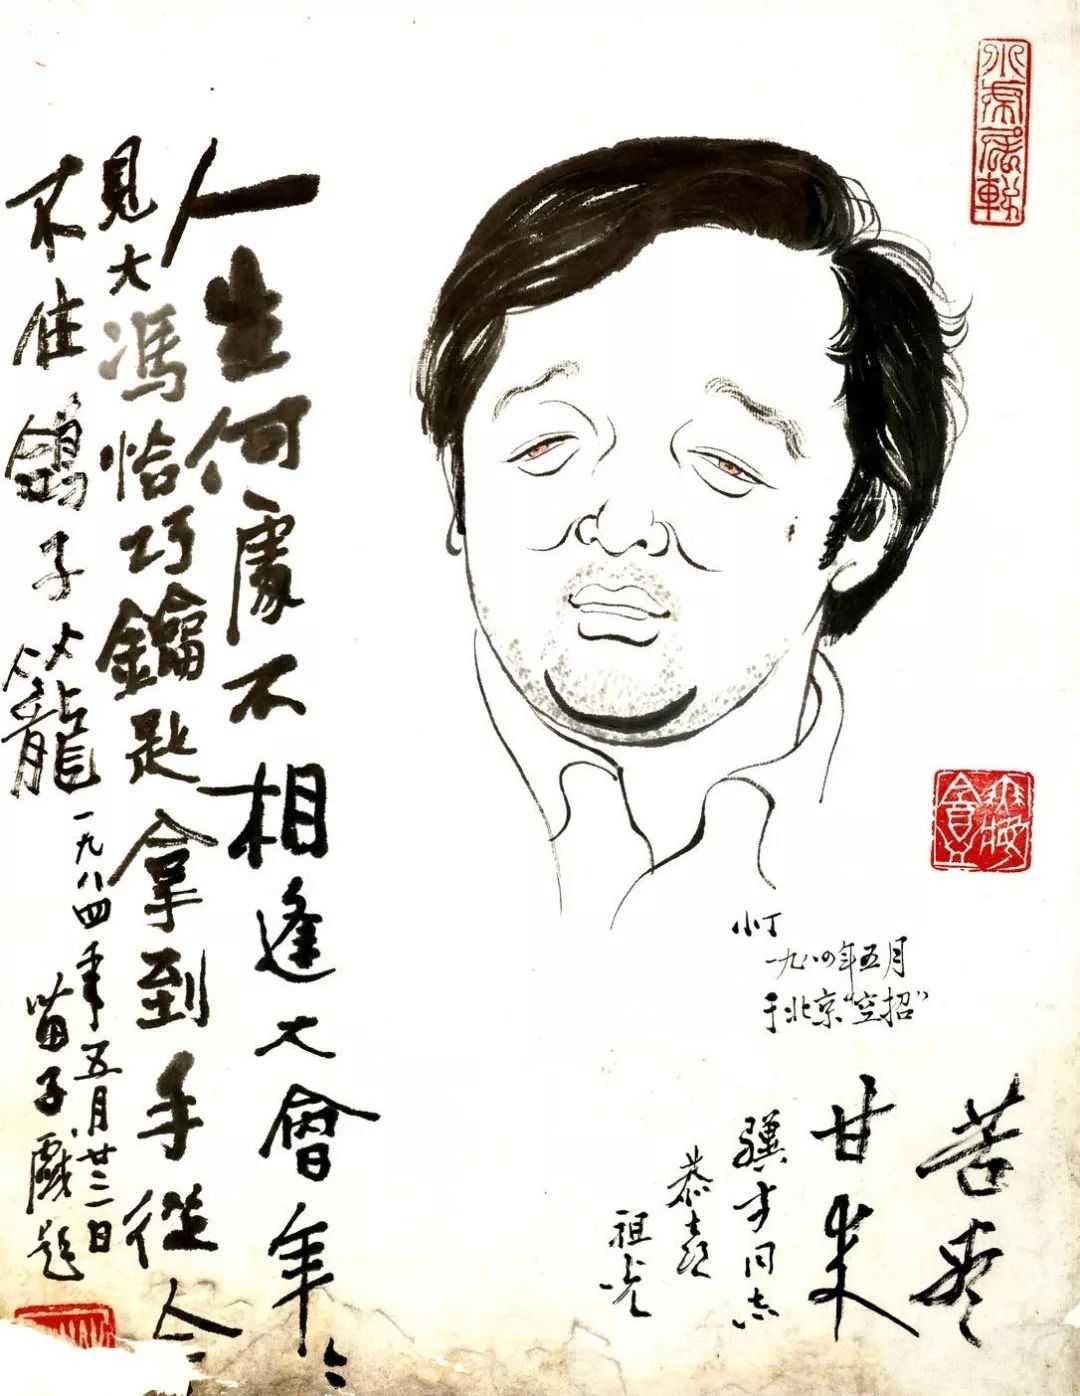 人生何處不相逢大會年
見大馮恰巧鑰匙拿到手從今
不住鴿子籠 一九八四年五月廿三日
苗子戲題
小丁
一九八四年五月
于北京“空招”
苦尽
甘来
驥才同志
恭喜
祖光